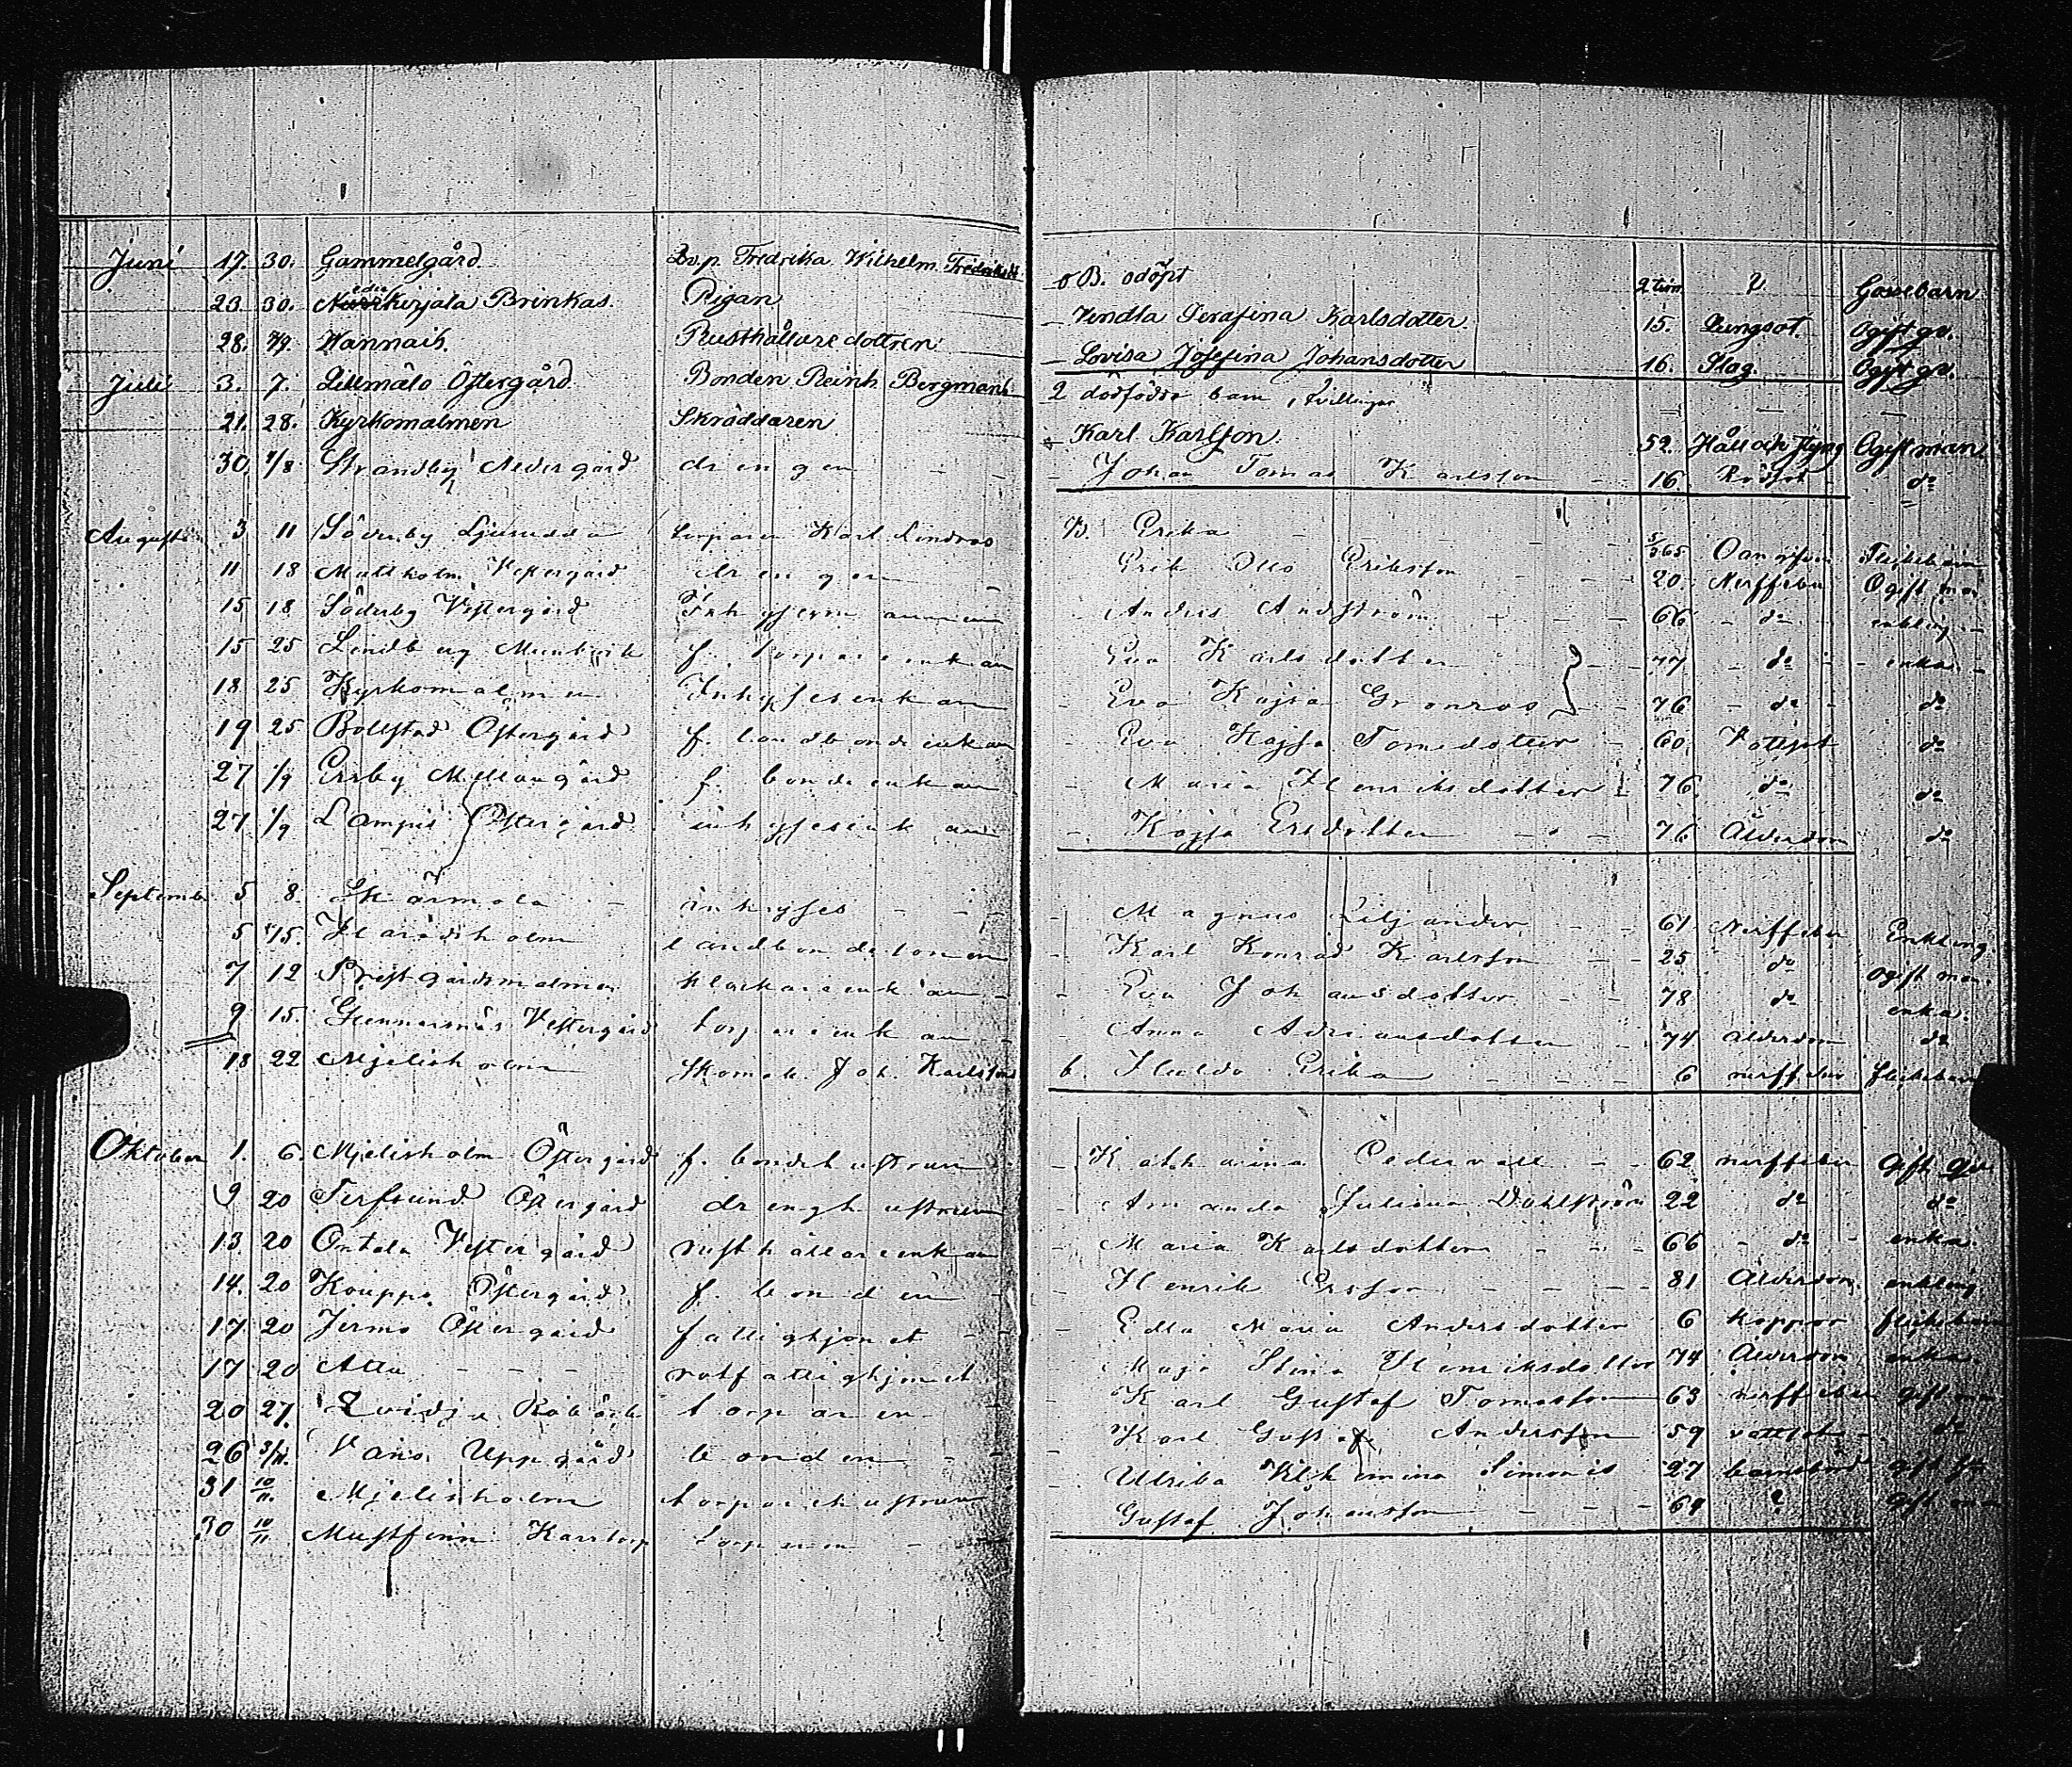 Juni 17. 30. Gammelgård. Lösp. Fredrika Wilhelm. Fredriksdt. o. B. odöpt 2 tim. ? Gossebarn
23. 30. Nederkirjala Brinkas. Pigan Vendla Serafina Karlsdotter. 15. Lungsot. Ogift qv.
28. 7/7. Hannais. Rusthållaredottren Lovisa Josefina Johansdotter 16. Slag. Ogift qv.
Juli 3. 7. Lillmälo Östergård. Bonden Reinh. Bergmans 2 dödfödda barn, Tvillingar — — —
21. 28. Kyrkomalmen Skräddaren Karl Karlsson. 52. Håll och styng Ogift man
30. 4/8. Strandby Nedergård drengen Johan Tomas Karlsson 16. Rödsot d:o
Augusti 3 11 Söderby Ljusudda torparen Karl Lindros B. Erika Flickebarn
11 18 Mattholm Vestergård drengen Erik Otto Eriksson 20. Nerffeber Ogift man
15 18 Söderby Vestergård Inhysesmannen Anders Andström 66 d:o enkling
15 25 Lindberg f. torpareenkan Eva Karlsdotter 77 d:o enka
18 25 Kyrkomalmen Inhysesenkan Eva Kajsa Grönros 76 d:o d:o
19 25 Bollstad Östergård f. landbondeenkan Eva Kajsa Tomsdotter 60 Vattsot d:o
27 1/9 Ersby Mellangård f. bondeenkan Maria Henriksdotter 76. d:o d:o
27 1/9 Lampis Östergård inhysesenkan Kajsa Ersdotter 76 Ålderdom d:o
September 5 8. Skärmola inhyses Magnus Liljander 61 Nerffeber Enkling
5 15. Haradsholm landbondesonen Karl Konrad Karlsson 25 d:o ogift man.
7 12 Prestgårdsmalmen klockareenkan Eva Johansdotter 78 d:o enka.
9 15. Gunnarsnäs Vestergård torpareenkan Anna Adriansdotter 74 ålderdom d:o
18 22 Mjelisholm Skomak. Joh. Karlssons b. Hulda Erika 6 nerffeber flickebarn
Oktober 1. 6. Mjelisholm Östergård f. bondehustrun Katharina Cedervall 62 nerffeber Gift qv.
9 20 Terfsund Östergård drenghustrun Amanda Juliana Dahlström 22 d:o d:o
13. 20 Ontala Vestergård rusthållareenkan Maria Karlsdotter 66 d:o enka.
14. 20 Kouppo Östergård f. bonden Henrik Ersson 81 Ålderdom enkling
17 20 Jermo Östergård fattighjonet Edla Maria Andersdotter 6 koppor flickebarn
17 20 Attu rotfattighjonet Maja Stina Henriksdotter 74 Ålderdom enka.
20 27. torparen Karl Gustaf Tomasson 63 nerffeber gift man
26 3/11. Vånå Uppgård bonden Karl Gustaf Andersson 59 vattsot d:o
31 10/11. Mjelisholm torparehustrun Ulrika Vilhelmina Simonis 27 barnsbörd gift
30 10/11 Mustfinn Karstorp torparen Gustaf Johansson ? Gift man